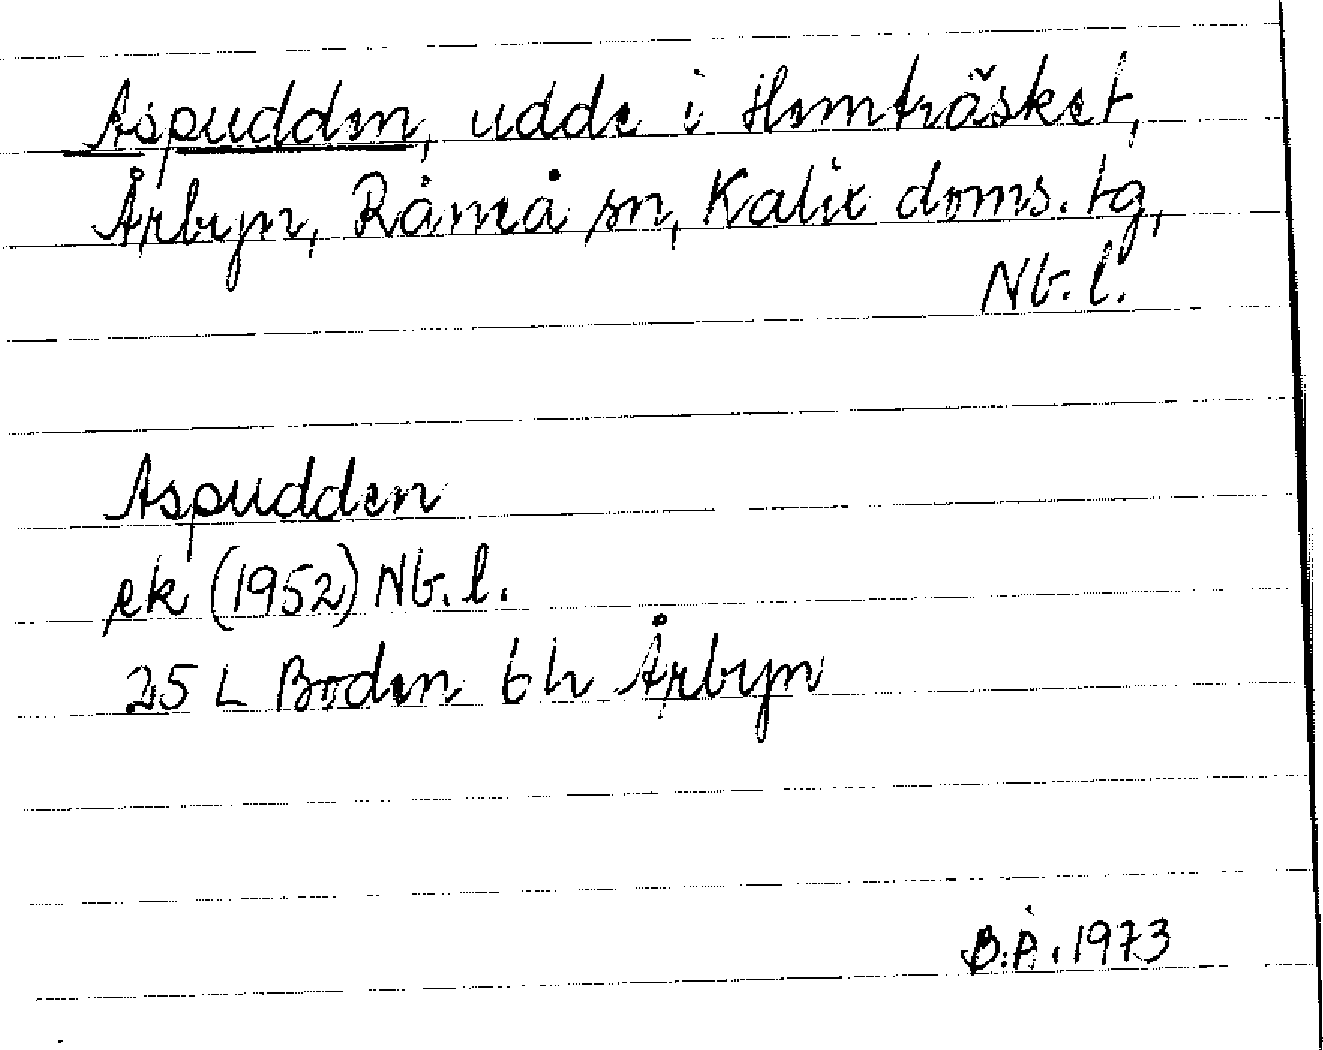 Aspudden, udde i Hemträsket,
Årbyn, Råneå sn, Kalix doms. tg,
Nb. l.
Aspudden
ek (1952) Nb. l.
25 L Boden 6h Årbyn
B.Å. 1973